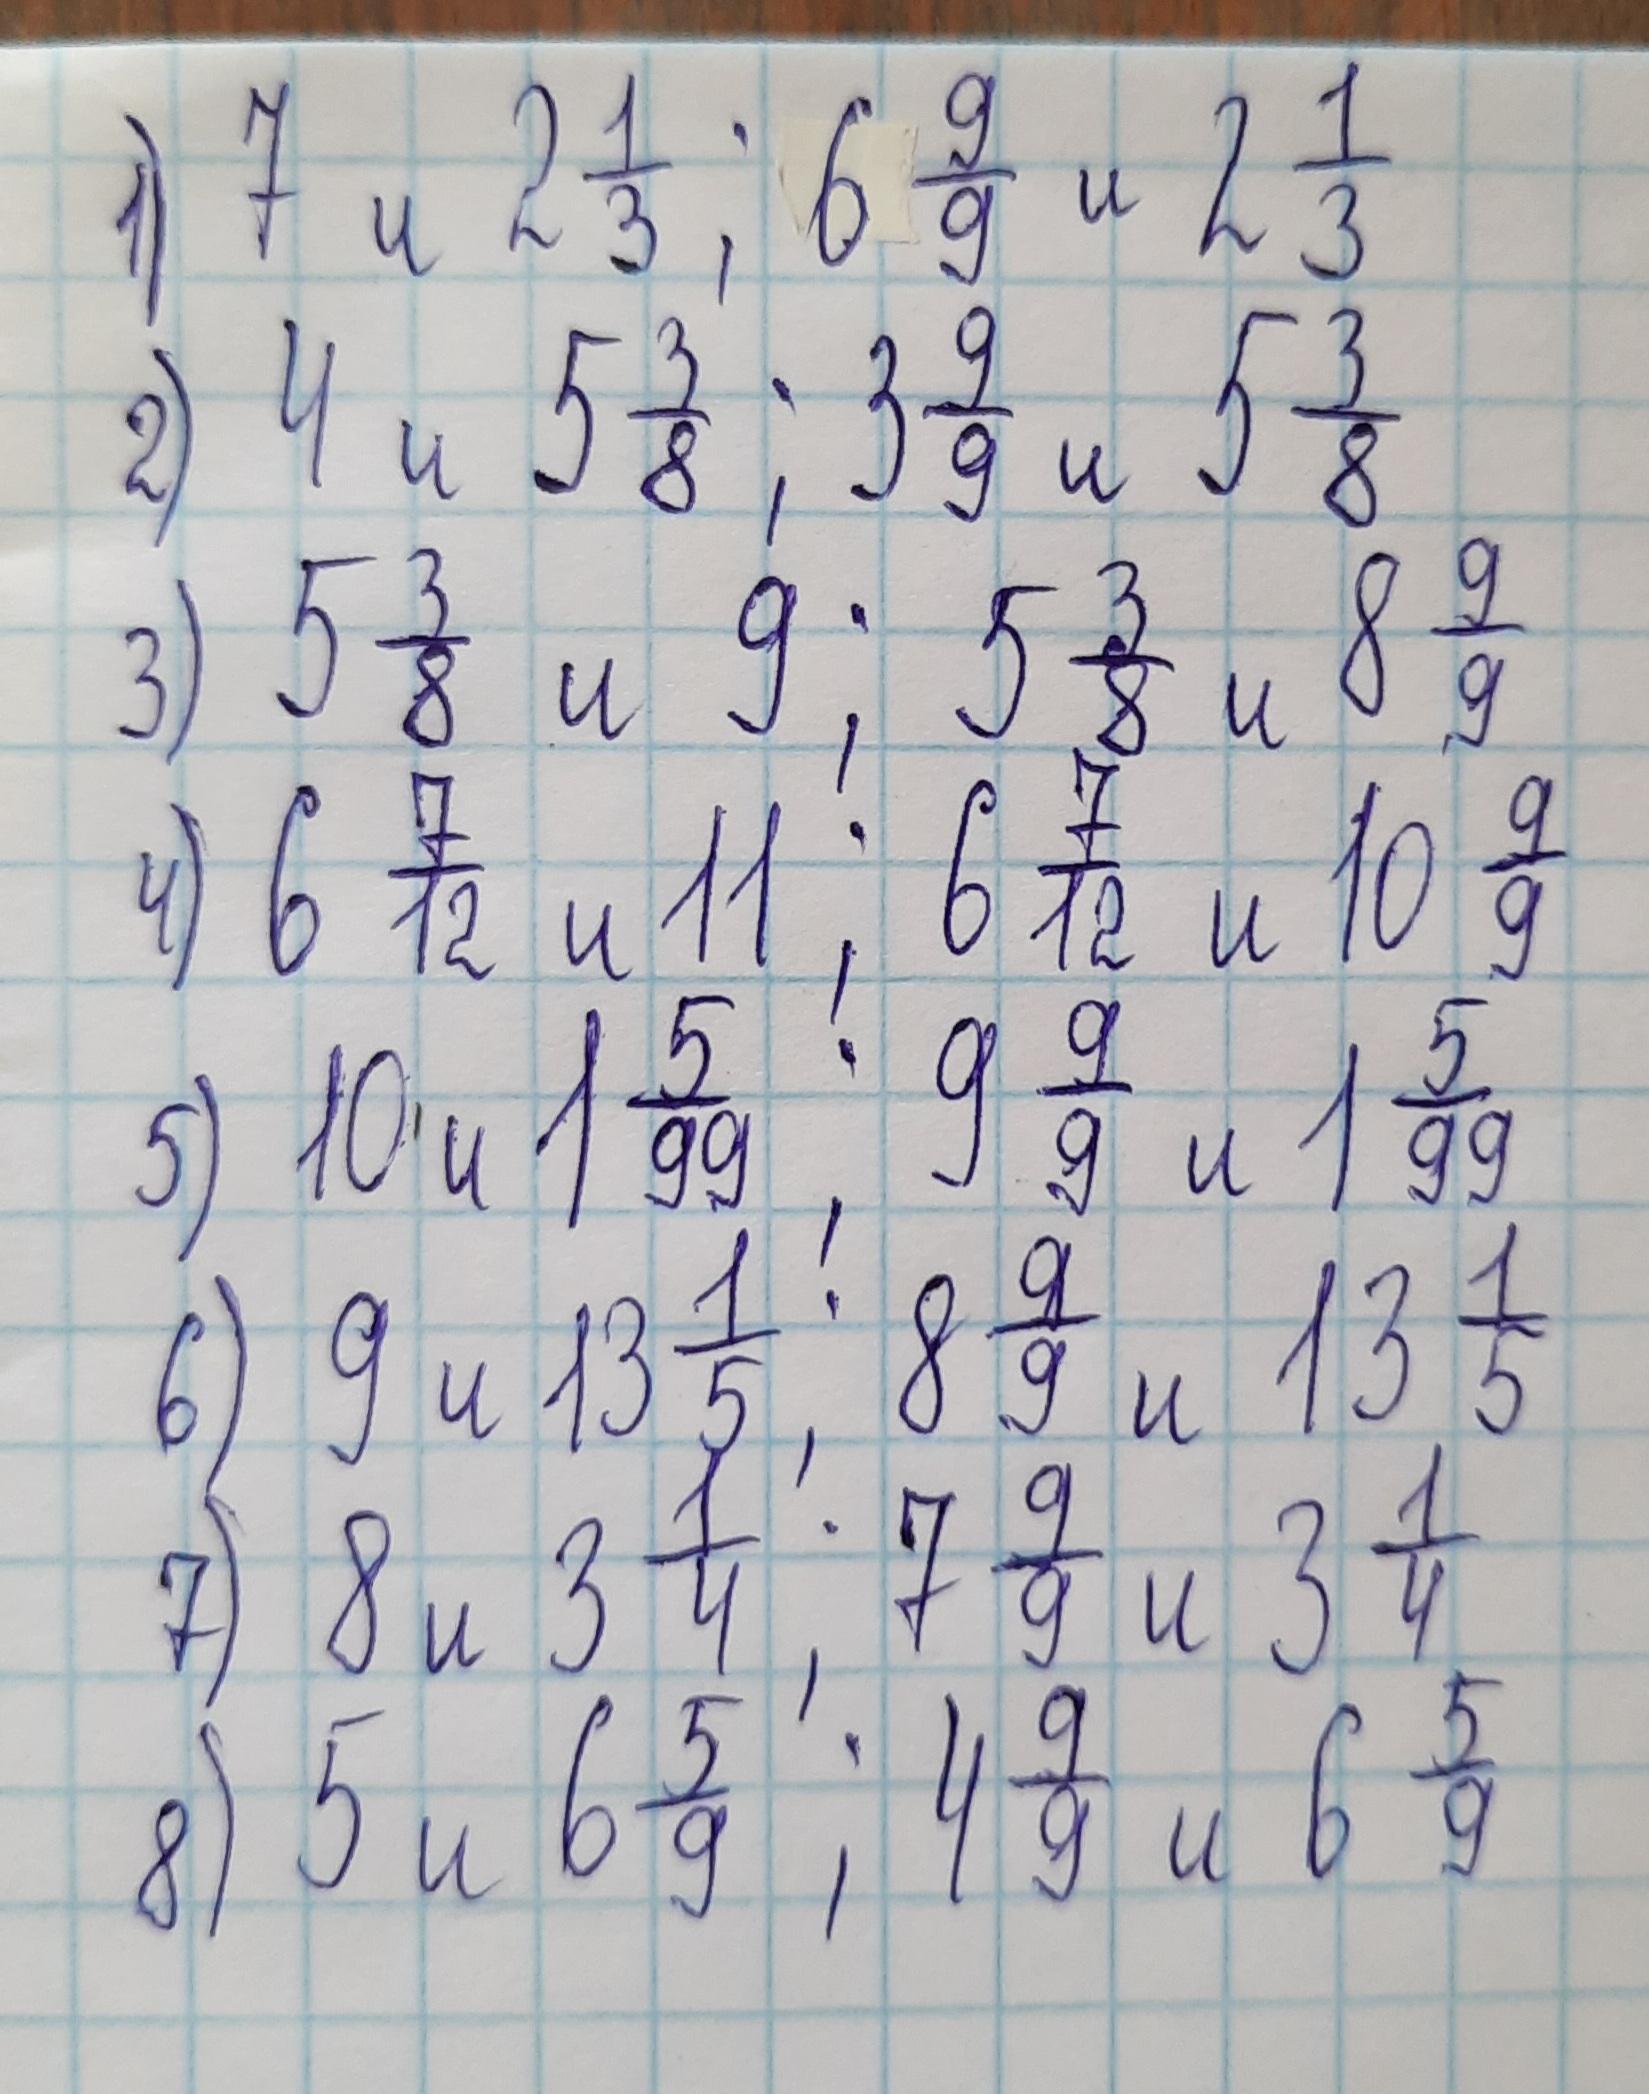 1) 7 и 2 1/3 ; 6 9/9 и 2 1/3
2) 4 и 5 3/8 ; 3 9/9 и 5 3/8
3) 5 3/8 и 9 ; 5 3/8 и 8 9/9
4) 6 7/12 и 11 ; 6 7/12 и 10 9/9
5) 10 и 1 5/99 ; 9 9/9 и 1 5/99
6) 9 и 13 1/5 ; 8 9/9 и 13 1/5
7) 8 и 3 1/4 ; 7 9/9 и 3 1/4
8) 5 и 6 5/9 ; 4 9/9 и 6 5/9